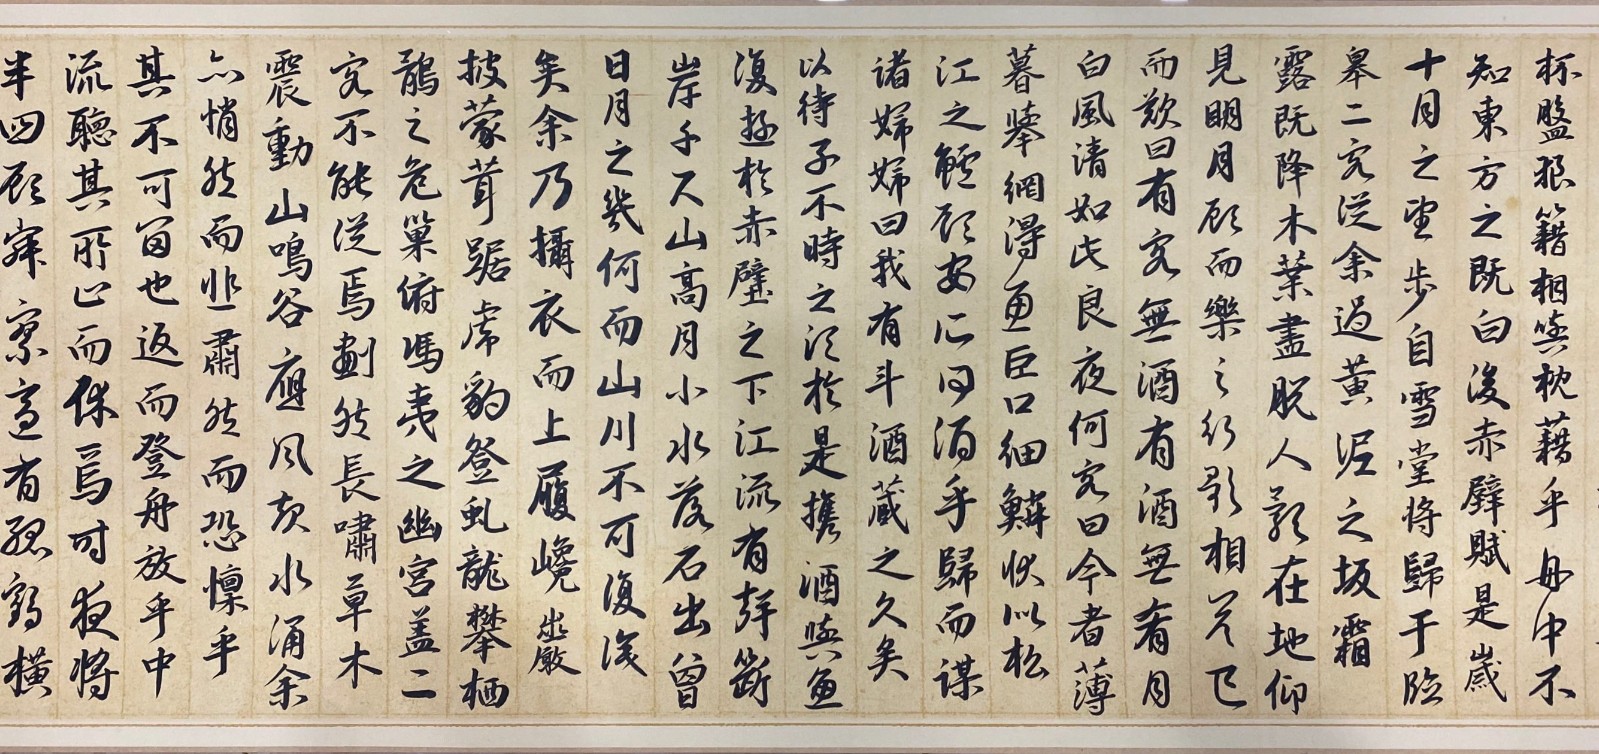 杯盤狼籍相與枕藉乎舟中不
知東方之既白後赤壁賦是歲
十月之望步自雪堂將歸于臨
皋二客從余過黃泥之坂霜
露既降木葉盡脫人影在地仰
見明月顧而樂之行歌相答已
而歎曰有客無酒有酒無肴月
白風清如此良夜何客曰今者薄
暮舉網得魚巨口細鱗狀似松
江之鱸顧安所得酒乎歸而謀
諸婦婦曰我有斗酒藏之久矣
以待子不時之須於是攜酒與魚
復遊於赤壁之下江流有聲斷
岸千尺山高月小水落石出曾
日月之幾何而山川不可復識
矣余乃攝衣而上履巉巖
披蒙茸踞虎豹登虬龍攀栖
鶻之危巢俯馮夷之幽宮蓋二
客不能從焉劃然長嘯草木
震動山鳴谷應風起水涌余
亦悄然而悲肅然而恐懍乎
其不可留也返而登舟放乎中
流聽其所止而休焉時夜將
半四顧寂寥適有孤鶴橫